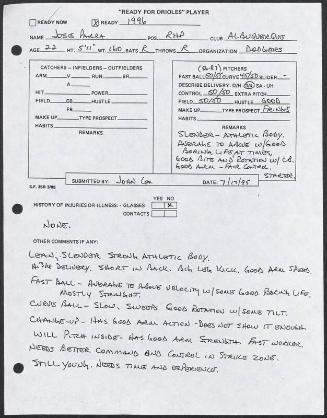 "READY FOR ORIOLES" PLAYER
READY NOW READY 1996
NAME JOSE PARRA POS RHP CLUB ALBUQUERQUE
AGE 22 HT. 5'11" WT. 160 BATS R THROWS R ORGANIZATION DODGERS
CATCHERS - INFIELDERS - OUTFIELDERS
ARM V RUN ER
A
HIT POWER
FIELD GB HUSTLE
FR
MAKE UP TYPE PROSPECT
HABITS
REMARKS
(2-87) PITCHERS
FAST BALL 50/55 CURVE 45/50 SLIDER -
DESCRIBE DELIVERY - O/H 3/4 SA - UH
CONTROL 50/50 EXTRA PITCH
FIELD 50/50 HUSTLE GOOD
MAKE UP TYPE PROSPECT FRINGE
HABITS
REMARKS
SLENDER - ATHLETIC BODY.
AVERAGE TO ABOVE W/GOOD
BORING LIFE AT TIMES,
GOOD BITE AND ROTATION W/ CB.
GOOD ARM - FAIR CONTROL.
STARTER
SUBMITTED BY: JOHN COX DATE: 7/17/95
HISTORY OF INJURIES OR ILLNESS: - GLASSES YES NO X
CONTACTS
NONE.
OTHER COMMENTS IF ANY:
LEAN, SLENDER, STRONG ATHLETIC BODY.
DELIVERY. SHORT IN BACK. BIG LEG KICK. GOOD ARM SPEED.
FAST BALL - AVERAGE TO ABOVE VELOCITY W/SOME GOOD BORING LIFE.
MOSTLY STRAIGHT.
CURVE BALL - SLOW, SWEEPS GOOD ROTATION W/ SOME TILT.
CHANGE-UP - HAS GOOD ARM ACTION - DOES NOT SHOW IT ENOUGH
WILL PITCH INSIDE - HAS GOOD ARM STRENGTH. FAST WORKER.
NEEDS BETTER COMMAND AND CONTROL IN STRIKE ZONE.
STILL YOUNG, NEEDS TIME AND EXPERIENCE.